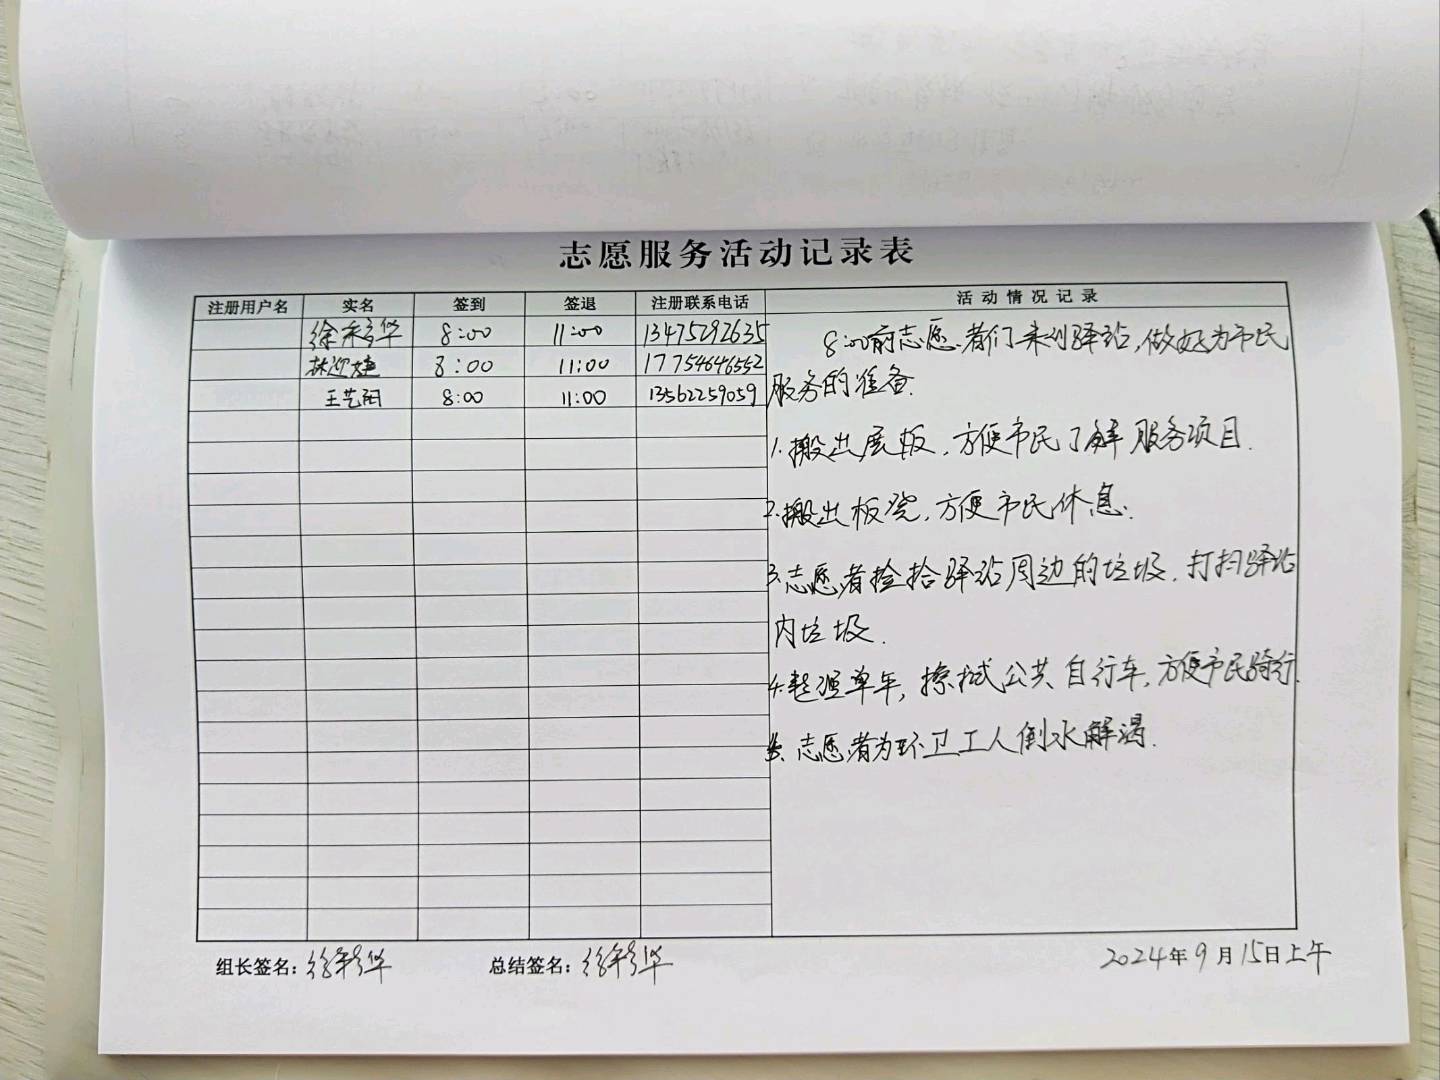 志愿服务活动记录表
注册用户名 实名 签到 签退 注册联系电话 活动情况记录
徐彩华 8:00 11:00 13475292635
林迎婕 8:00 11:00 17754646552
王艺阳 8:00 11:00 13562259059
8:00前志愿者们来到驿站,做好为市民
服务的准备.
1.搬出展板.方便市民了解服务项目.
2.搬出板凳.方便市民休息.
3.志愿者捡拾驿站周边的垃圾.打扫驿站
内垃圾.
4.整理单车,擦拭公共自行车.方便市民骑行.
5.志愿者为环卫工人倒水解渴.
组长签名:徐彩华 总结签名:徐彩华 2024年9月15日上午